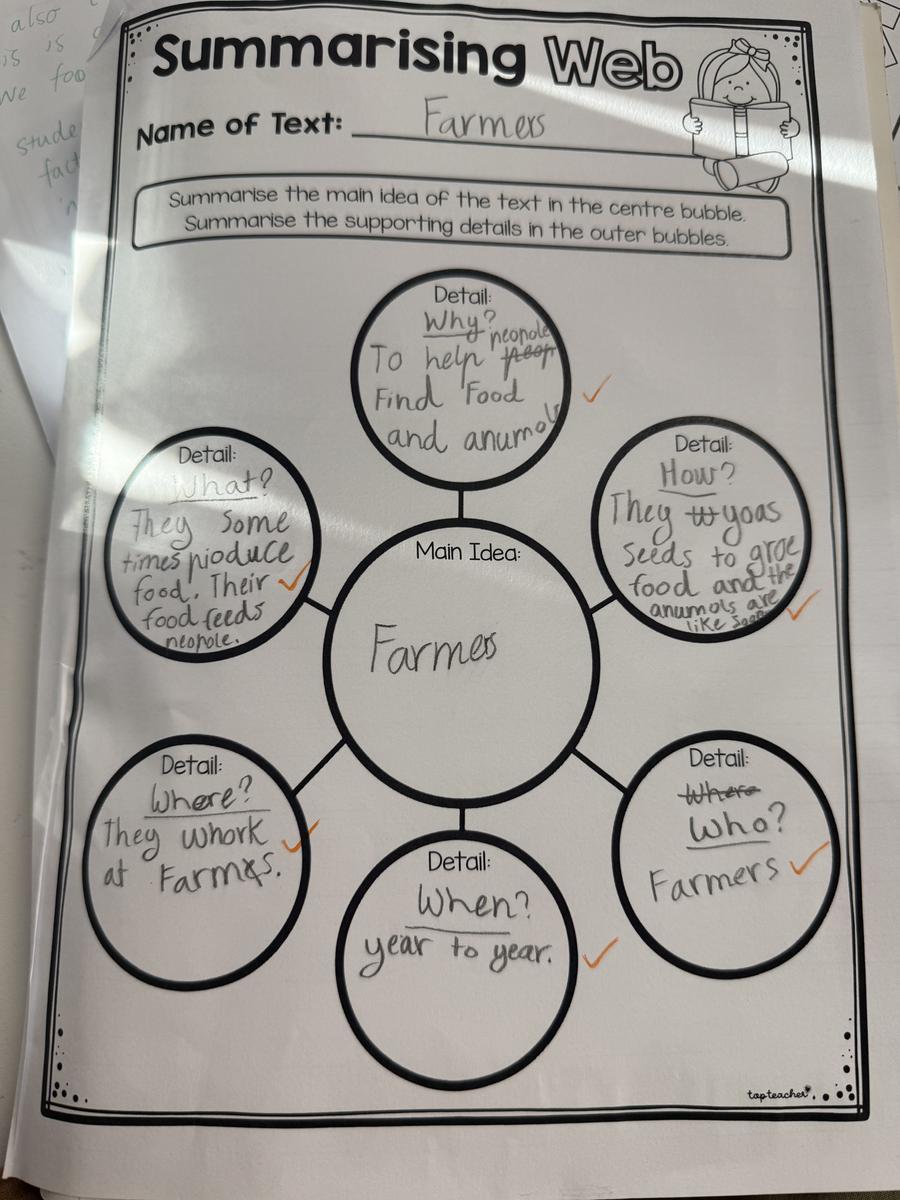 also
is is
we foo
stude
fact
Summarising Web
Name of Text: Farmers
Summarise the main idea of the text in the centre bubble.
Summarise the supporting details in the outer bubbles.
Detail:
Why?
neopole
To help peop
Find Food
and anumols
Detail:
What?
They some
times produce
food. Their
food feeds
neopole.
Detail:
How?
They yoas
seeds to groe
food and the
anumols are
like
Main Idea:
Farmers
Detail:
Where?
They whork
at Farmes.
Detail:
When?
year to year.
Detail:
Where
Who?
Farmers
topteacher